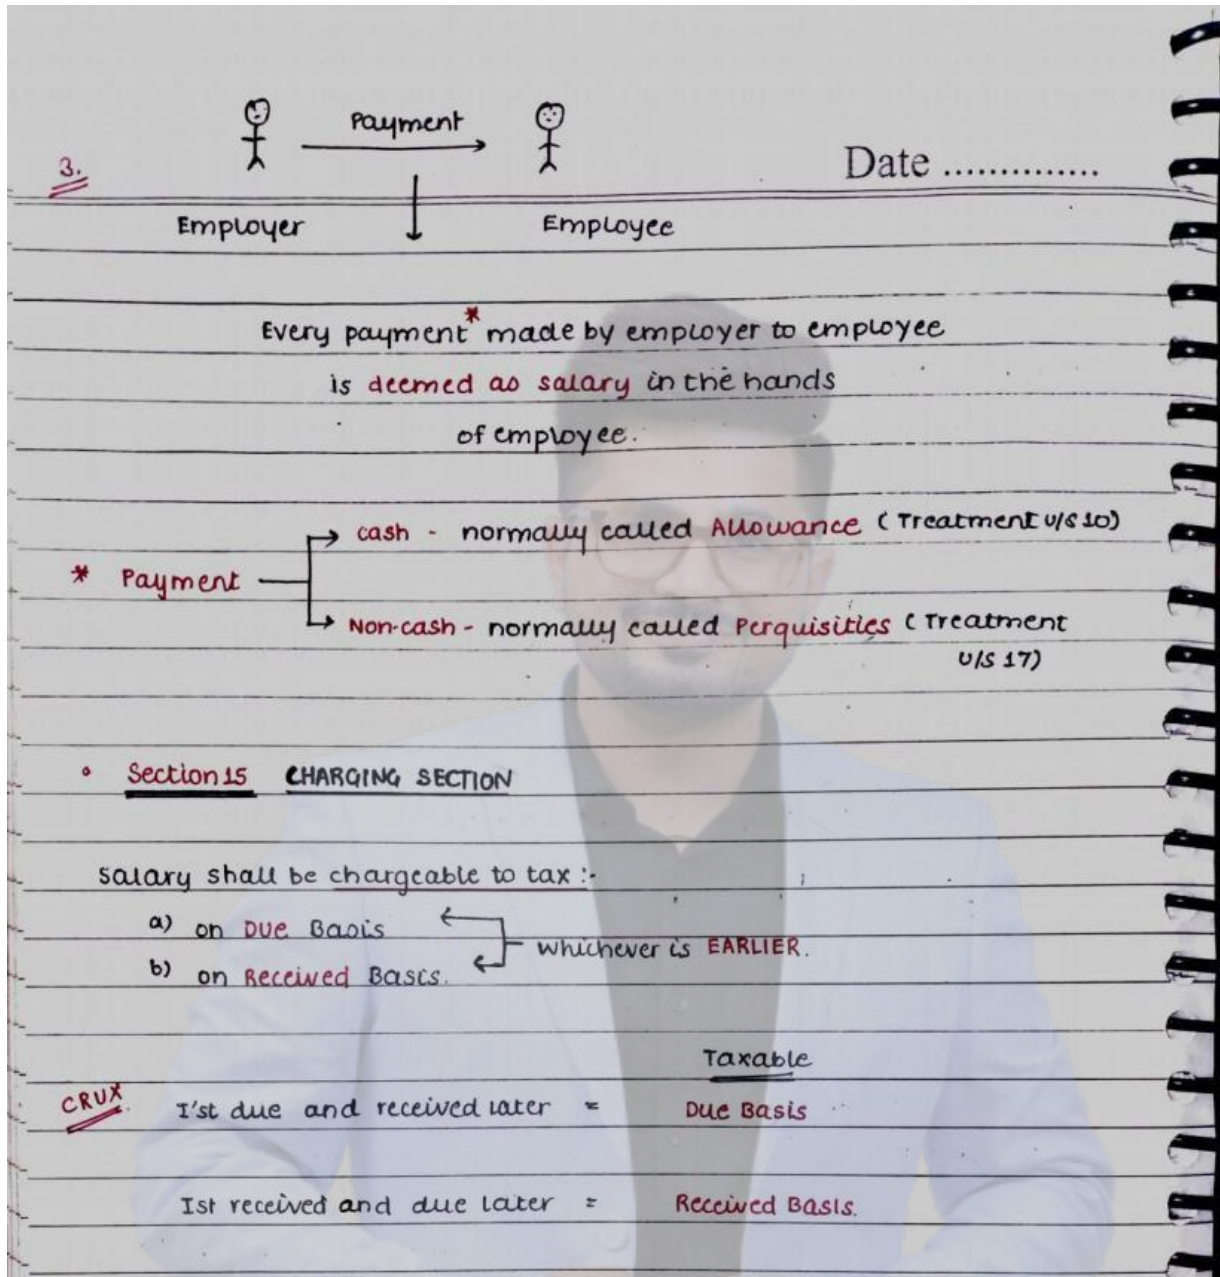 Payment
3.
Date ..............
Employer Employee
Every payment* made by employer to employee
is deemed as salary in the hands
of employee.
cash - normally called Allowance (Treatment U/S 10)
* Payment
Non-cash - normally called Perquisities (Treatment
U/S 17)
• Section 15 CHARGING SECTION
Salary shall be chargeable to tax :-
a) on Due Basis
whichever is EARLIER.
b) on Received Basis.
Taxable
CRUX
I'st due and received later = Due Basis
Ist received and due later = Received Basis.